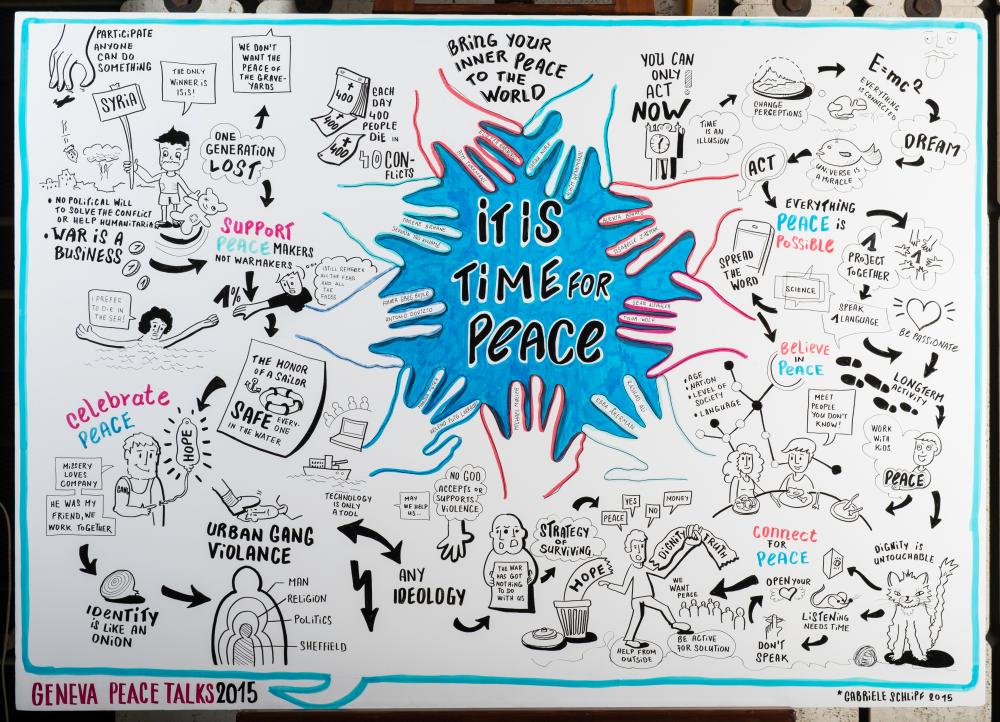 PARTICIPATE
ANYONE
CAN DO
SOMETHING
SYRIA
THE ONLY
WINNER IS
ISIS!
WE DON'T
WANT THE
PEACE OF
THE GRAVE-
YARDS
ONE
GENERATION
LOST
400
400
400
EACH
DAY
400
PEOPLE
DIE IN
40 CON-
FLICTS
• NO POLITICAL WILL
TO SOLVE THE CONFLICT
OR HELP HUMANITARIAN
• WAR IS A
BUSINESS
SUPPORT
PEACE MAKERS
NOT WARMAKERS
1%
I STILL REMEMBER
ALL THE FEAR
AND ALL
THE
FACES
I PREFER
TO DIE IN
THE SEA!
THE HONOR
OF A SAILOR
SAFE EVERY-
ONE
IN THE WATER
CELEBRATE
PEACE
HOPE
MISSERY
LOVES
COMPANY
HE WAS MY
FRIEND, WE
WORK TOGETHER
GANG
URBAN GANG
VIOLANCE
IDENTITY
IS LIKE AN
ONION
MAN
RELIGION
POLITICS
SHEFFIELD
TECHNOLOGY
IS ONLY
A TOOL
ANY
IDEOLOGY
MAY
WE HELP
US...
NO GOD
ACCEPTS OR
SUPPORTS
VIOLENCE
THE WAR
HAS GOT
NOTHING
TO DO
WITH US
STRATEGY
OF SURVIVING
HOPE
PEACE
YES
NO
MONEY
DIGNITY
TRUTH
WE
WANT
PEACE
HELP FROM
OUTSIDE
BE ACTIVE
FOR SOLUTION
BRING YOUR
INNER PEACE
TO THE
WORLD
IT IS
TIME FOR
PEACE
YOU CAN
ONLY
ACT
NOW!
TIME IS
AN
ILLUSION
CHANGE
PERCEPTIONS
E=mc²
EVERYTHING
IS CONNECTED
DREAM
UNIVERSE IS
A MIRACLE
ACT
EVERYTHING
PEACE IS
POSSIBLE
SPREAD
THE
WORD
1
PROJECT
TOGETHER
1
SCIENCE
SPEAK
1 LANGUAGE
BE PASSIONATE
BELIEVE
IN
PEACE
LONGTERM
ACTIVITY
• AGE
• NATION
• LEVEL OF
SOCIETY
• LANGUAGE
MEET
PEOPLE
YOU DON'T
KNOW!
WORK
WITH
KIDS
PEACE
CONNECT
FOR
PEACE
OPEN YOUR
DON'T
SPEAK
LISTENING
NEEDS TIME
DIGNITY IS
UNTOUCHABLE
GENEVA PEACE TALKS 2015
*GABRIELE SCHLIPF 2015